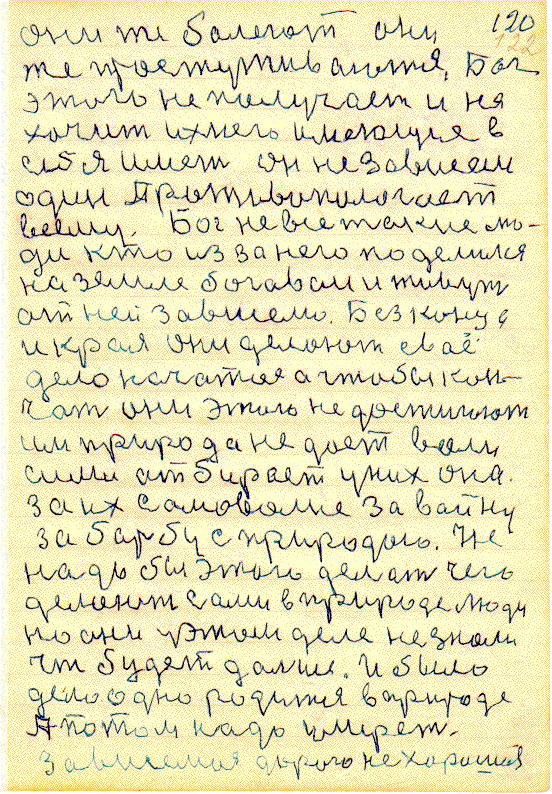 они же болеют они 120
же простуживаются. Бог 122
этого не получает и не
хочит ихнего имеющие в
себя имет он независем
один Противопологает
всему. Бог не все такие лю-
ди кто из за него поделился
на земле богаваи и живут
от ней зависемо. Без конца
и края они делают сваё
дело начатое а чтобы кон-
чат они этого не достигают
им природа не дает воли
силы отбирает у них она.
За их самоволие за вайну
за барбу с природою. Не
надо бы этого делат чего
делают сами в природе люди
но они у этом деле не знали
что будет далше. И было
дело одно родится в природе
А потом надо умерет.
Зависемая дорого не хорошая